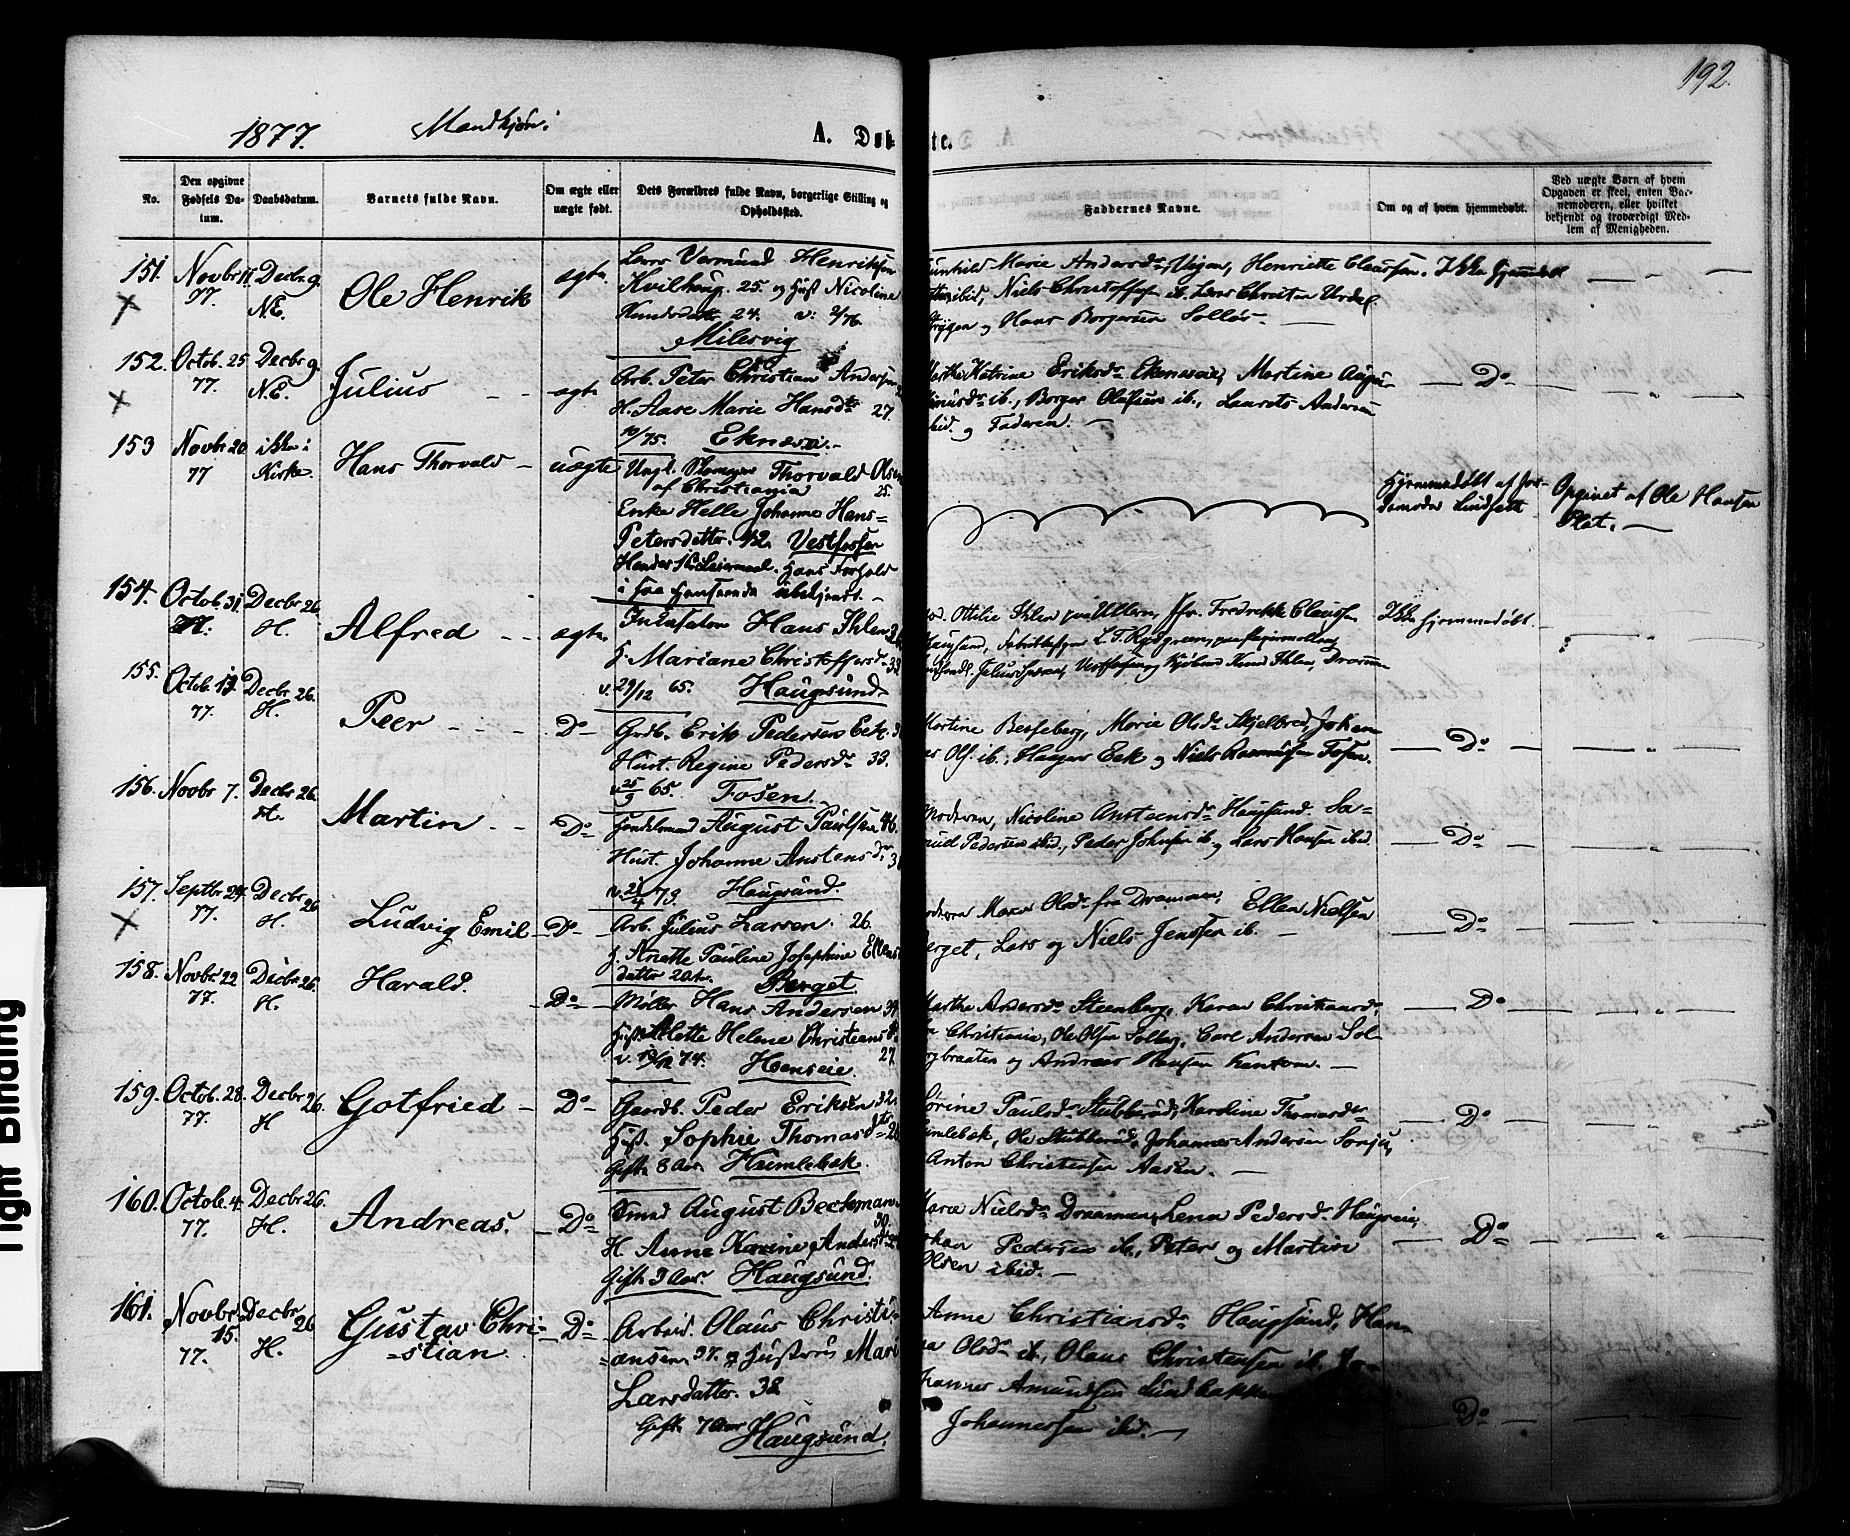 192.
1877. Mandkjøn:
A. Døb te.
No.
Den opgivne Fødsels Datum.
Daabsdatum.
Barnets fulde Navn.
Om ægte eller uægte født.
Dets Forældres fulde Navn, borgerlige Stilling og Opholdssted.
Faddernes Navne.
Om og af hvem hjemmedøbt.
Ved uægte Børn af hvem Opgaven er skeet, enten Barnemoderen, eller hvilket bekjendt og troværdigt Medlem af Menigheden.
151. Novbr 11. 77. Decbr 9. N.E. Ole Henrik ægte
Henriksen
25. og Hust Nicoline
Knudsdatter 24. v: 2/76
Milesvig
Marie Andersd. Henriette Claussen.
ibid, Niels Christoffersen ib. Lars Christen
og Hans Borgersen
Ikke hjemmedøbt
152. Octob. 25 77. Decbr 9. N.E. Julius ægte
Arb. Peter Christian Andersen
H. Aase Marie Hansdtr 27.
10/75. Eknæsei.
Marthe Katrine Eriksd. Eknæseie, Martine
ib., Borger Olafsen ib., Laurits Andersen
ibid. og Faderen.
Do
153 Novbr 20 77 ikke i Kirke. Hans Thorvald uægte
Ungk. Thorvald Olsen
af Christiania 25.
Enke Helle Johanne Hans=
Petersdatter. 42. Vestfossen
Hendes 1ste Leiermaal. Hans Forhold
i saa Henseende ubekjendt.
Hjemmedøbt af Jor=
demoder Lindseth
Opgivet af Ole Hansen
Plet.
154. Octob. 31. 77. Decbr 26. H. Alfred ægte
Hans Ihlen
H. Mariane Christoffersd. 33
v. 29/12 65. Haugsund
Ottilie Ihlen paa Ullern, Jfr. Fredrikke Claussen
Haugsund,
Vestfossen og Kjøbm. Knud Ihlen, Drammen
Ikke hjemmedøbt.
155. Octob. 13. 77. Decbr 26. H. Peer Do
Grdb. Erik Pedersen Eek.
Hust. Regine Pedersd. 33.
v 25/9 65. Fosen.
Martine Besseberg, Marie Olsd. Skjelbred, Johan=
ib., Eek og Niels Rasmussen Fosen.
Do
156. Novbr 7. Decbr 26. H. Martin Do
Handelsmand August Paulsen 46.
Hust. Johanne Anstensd.
v. 21/4 73. Haugsund.
Moderen, Nicoline Anstensd. Haugsund.
Pedersen ibid., Peder Johnsen ib. og Lars Hansen ibid.
Do
157. Septbr 24. 77. Decbr 26 H. Ludvig Emil Do
Arb. Julius Larsen. 26.
H. Anette Pauline Josephine Ellens
datter 20. Berget
Maren Olsd. fra Drammen, Ellen Nielsen
Berget, Lars og Niels Jenssen ib.
Do
158. Novbr 22 77. Decbr 26. H. Harald. Do
Møller Hans Andersen
Helene Christians
v. 13/12 74. Henseie. 27.
Marthe Andersd. Steenberg, Karen Christiansd.,
Christiania, Ole Olsen Solberg, Carl Andersen Sol=
bergbraaten og Andreas Hansen
Do
159. Octob. 28. 77. Decbr 26. H Gotfried Do
Gaardb. Peder Eriksen 32.
Hust. Sophie Thomasd.
Gift 8 Aar. Humlebæk.
Sørine Paulsd. Stubberud, Karoline Thomasd.
Humlebæk, Ole Stubberud, Johannes Andersen
Anton Christensen Aasen.
Do
160. Octob. 4. 77. Decbr 26. H. Andreas. Do
Smed August Beckman
H. Anne Karine Andersd.
Gift 3 Aar. Haugsund.
Maren Nielsd. Drammen, Lena Pedersd.
Johan Pedersen ib., Peter og Martin
Olsen ibid.
Do
161. Novbr 15. 77. Decbr 26 H. Gustav Chri=
=stian Do
Arbeid. Olaus Christi=
=ansen 37. og Hustru Mari
Larsdatter. 38
Gift 7 Aar Haugsund.
Anne Christiansd. Haugsund, Han=
na Olsd. ib., Olaus Christensen ib. Jo=
hannes Amundsen Lundbakken
Johannessen ibid.
Do
Tight Binding